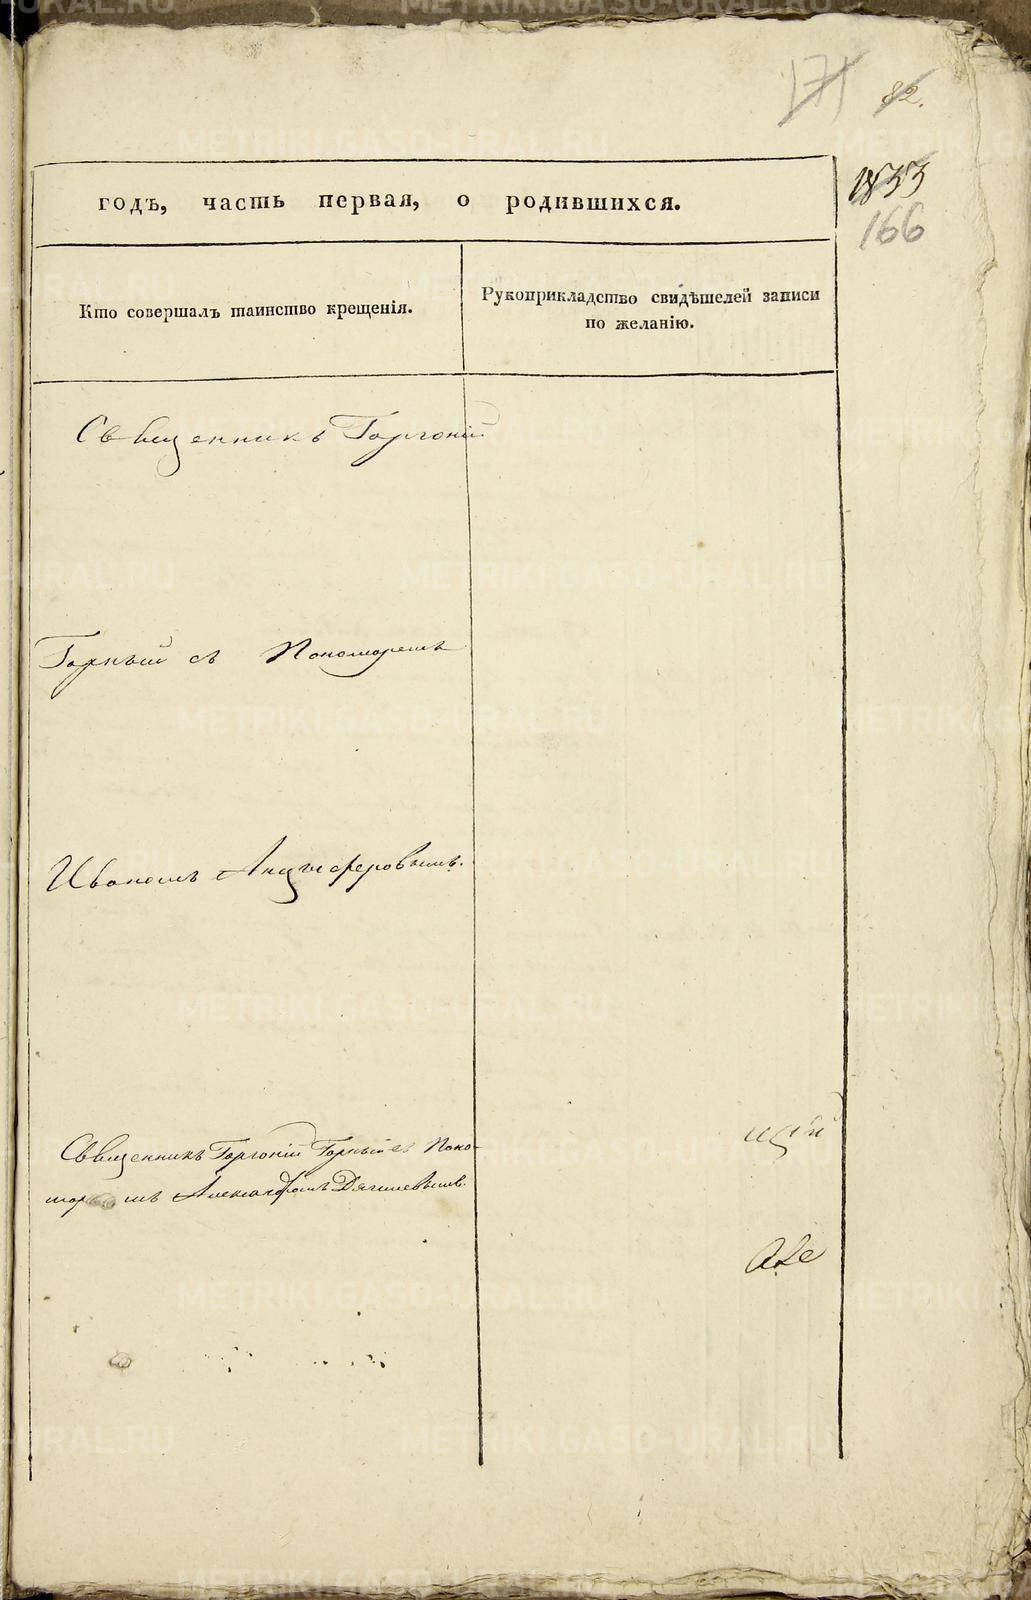 171 82.
1833
166
годъ, часть первая, о родившихся.
Кто совершалъ таинство крещенія.
Рукоприкладство свидѣтелей записи
по желанію.
Священникъ Горгоній
Горный съ Пономаремъ
Иваномъ Анцыферовымъ.
Священникъ Горгоній Горный съ Поно-
маремъ Александромъ Дягилевымъ.
METRIKI.GASO-URAL.RU